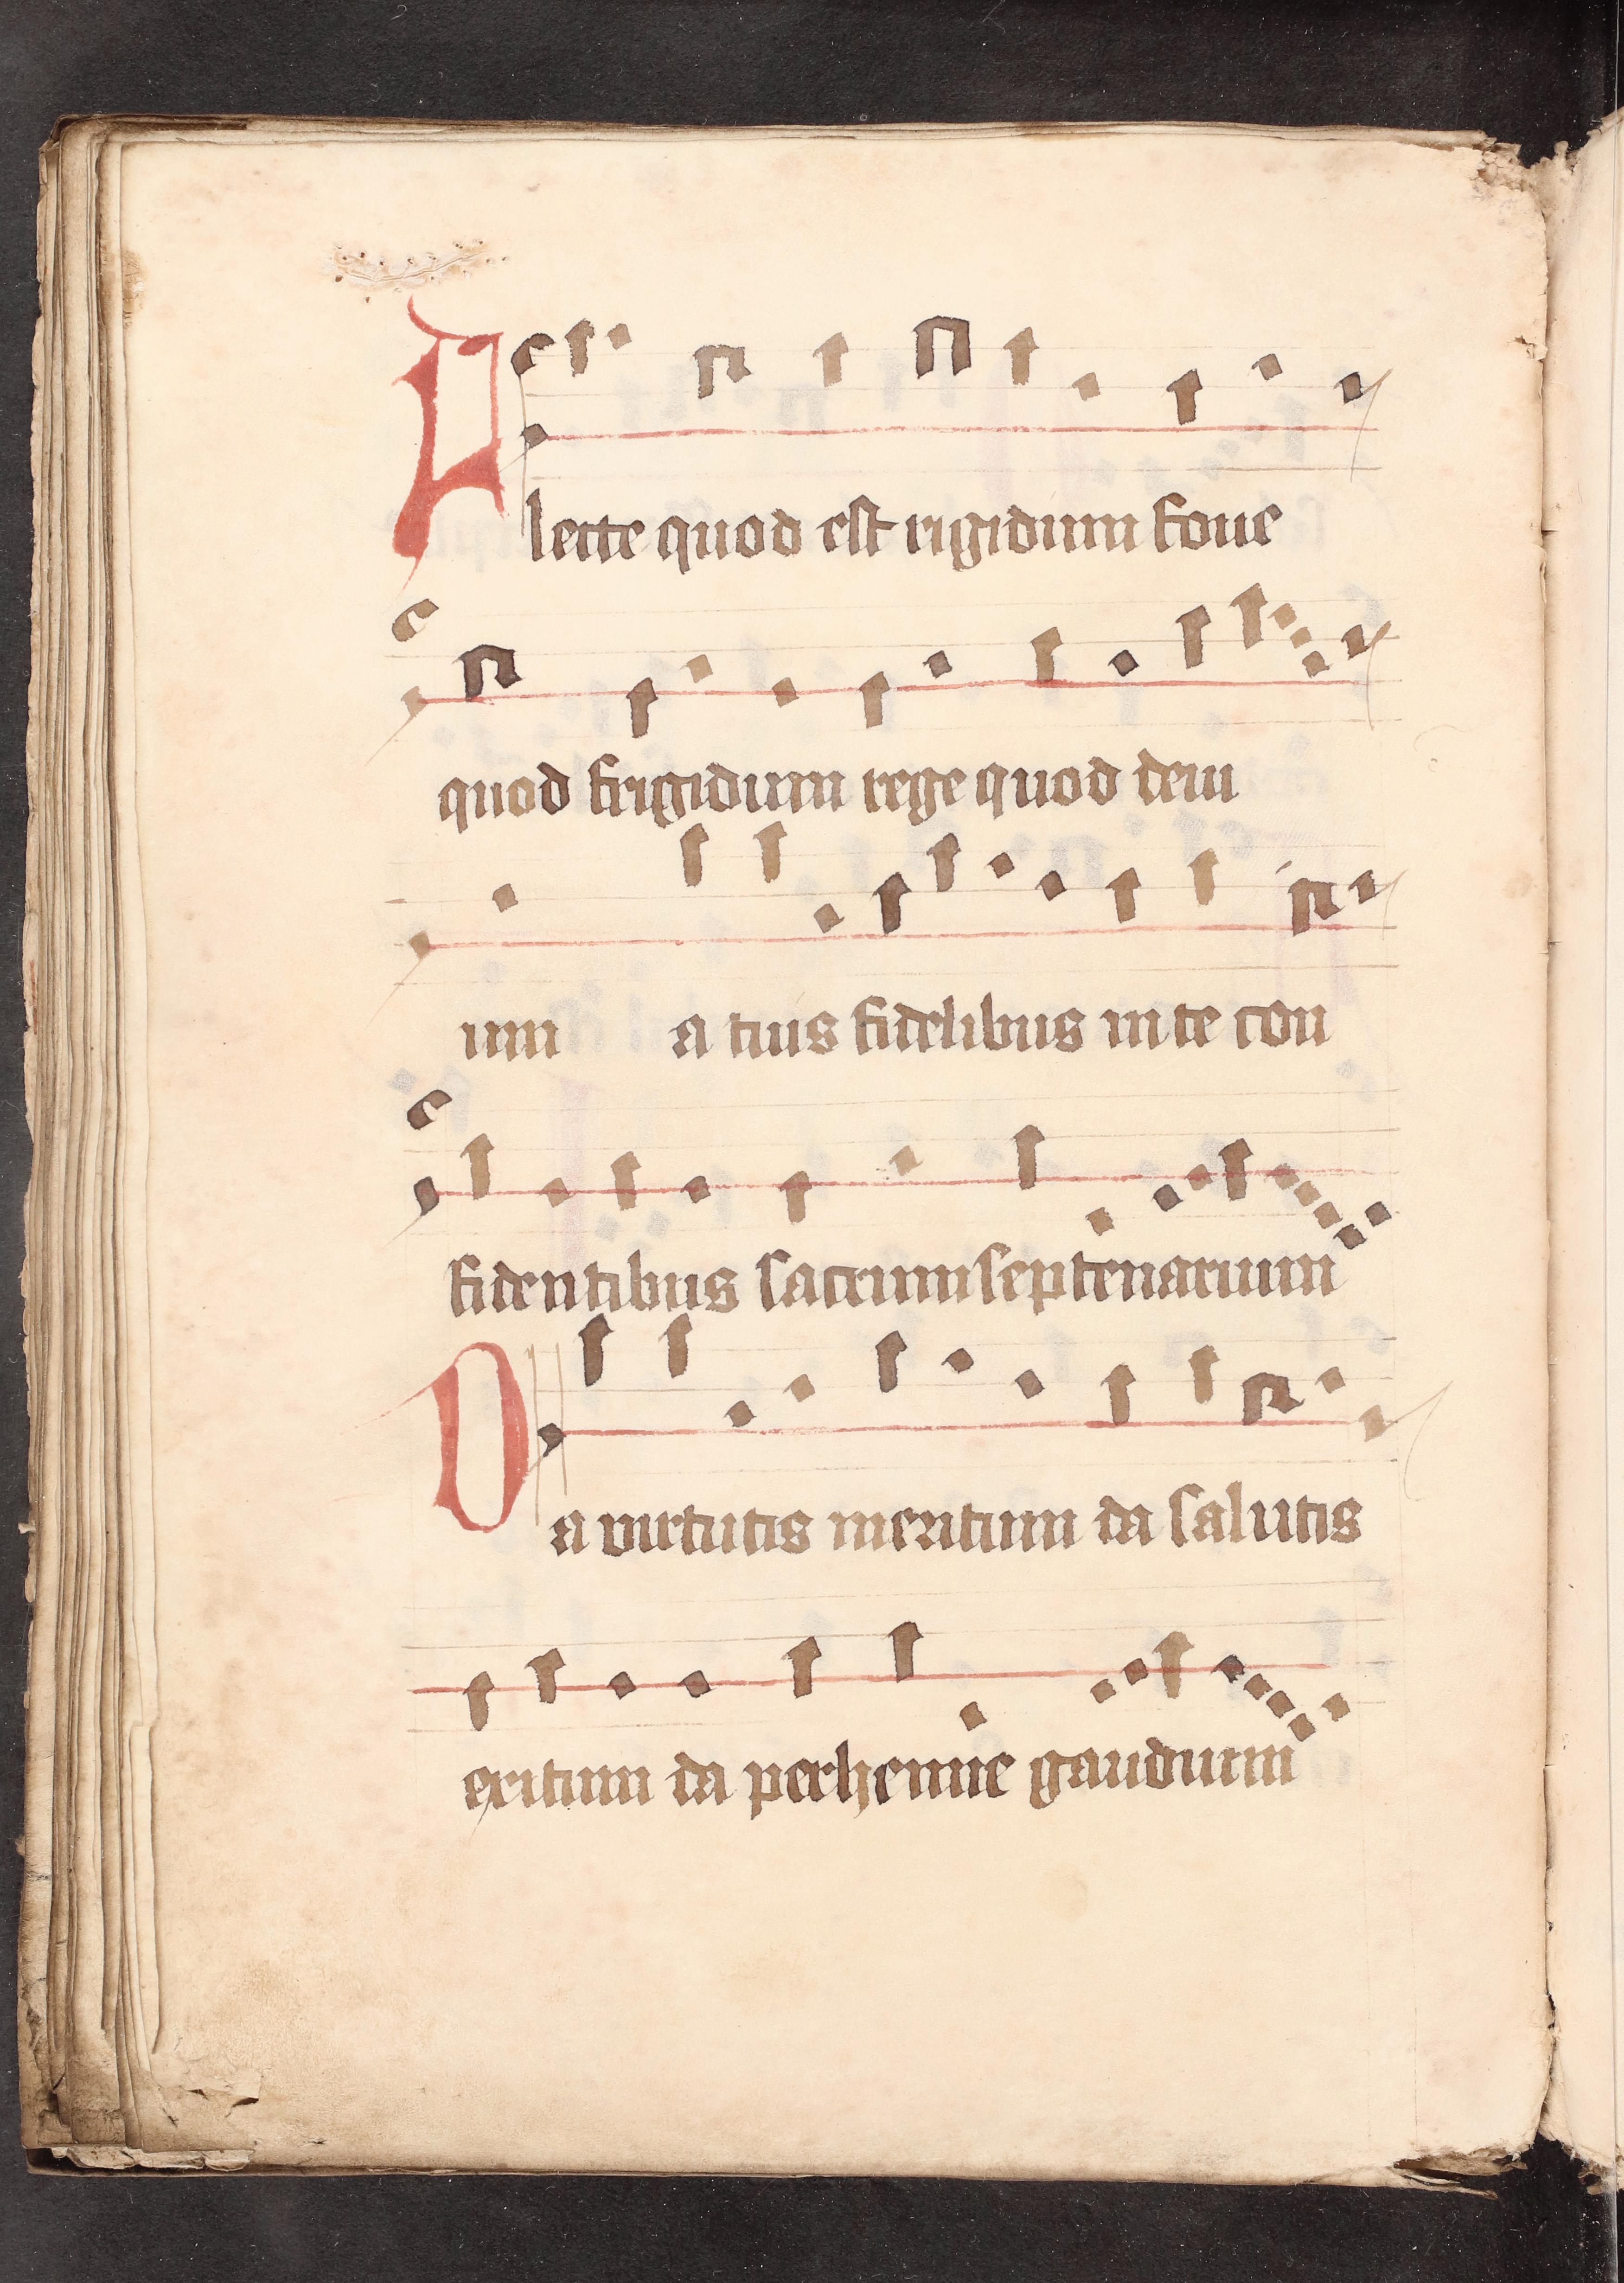 Flecte quod est rigidum foue
quod frigidum rege quod deui
um a tuis fidelibus in te con
fidentibus sacrum septenarium
Da virtutis meritum da salutis
exitum da perhenne gaudium